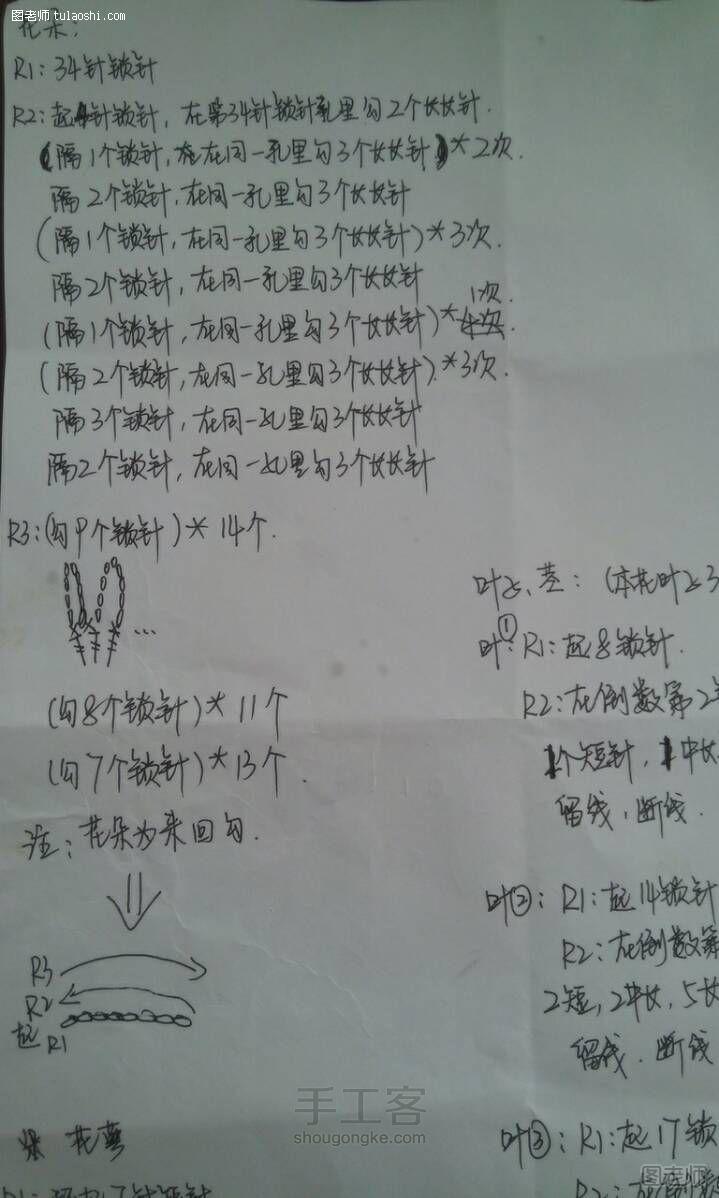 图老师 tulaoshi.com
花朵:
R1: 34针锁针
R2: 起4针锁针, 在第34针锁针孔里勾2个长长针.
(隔1个锁针, 在同一孔里勾3个长长针)*2次.
隔2个锁针, 在同一孔里勾3个长长针
(隔1个锁针, 在同一孔里勾3个长长针)*3次.
隔2个锁针, 在同一孔里勾3个长长针
1次.
(隔1个锁针, 在同一孔里勾3个长长针)*
(隔2个锁针, 在同一孔里勾3个长长针).*3次.
隔3个锁针, 在同一孔里勾3个长长针
隔2个锁针, 在同一孔里勾3个长长针
R3: (勾9个锁针)* 14个.
...
(勾8个锁针)* 11个
(勾7个锁针)* 13个.
注: 花朵为来回勾.
R3
R2
起 R1
花萼
叶、茎: (本花叶子3
叶①: R1: 起8锁针.
R2: 在倒数第2
1个短针, 1中长
留线, 断线.
叶②: R1: 起14锁针
R2: 在倒数第
2短, 2中长, 5长
留线. 断线
叶③: R1: 起17锁
手工客
shougongke.com
图老师